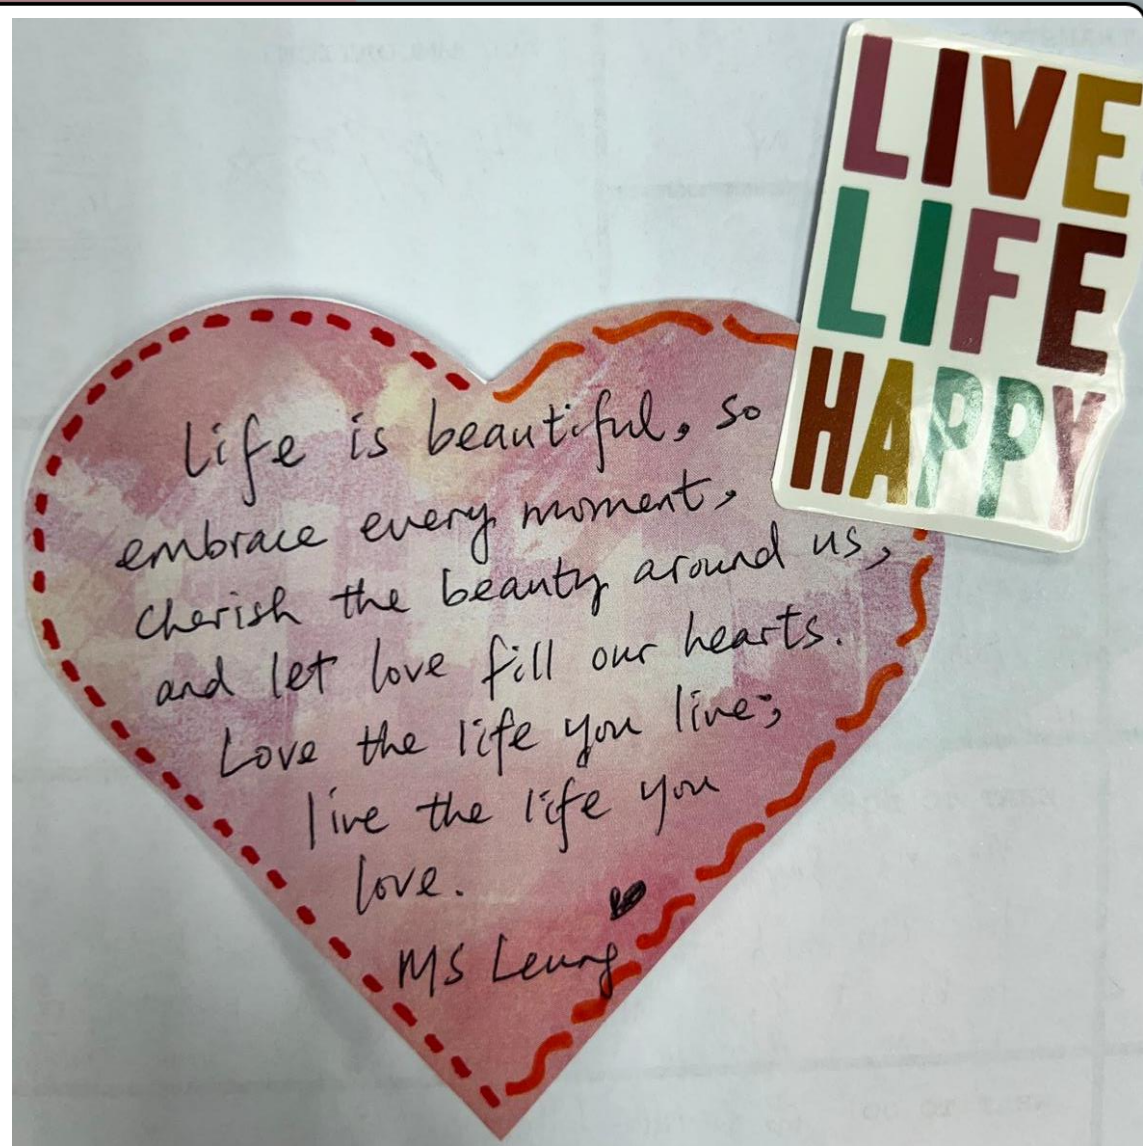 LIVE
LIFE
HAPPY
Life is beautiful, so
embrace every moment,
cherish the beauty around us,
and let love fill our hearts.
Love the life you live;
live the life you
love.
Ms Leung